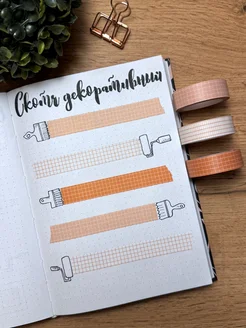 Скотч декоративный